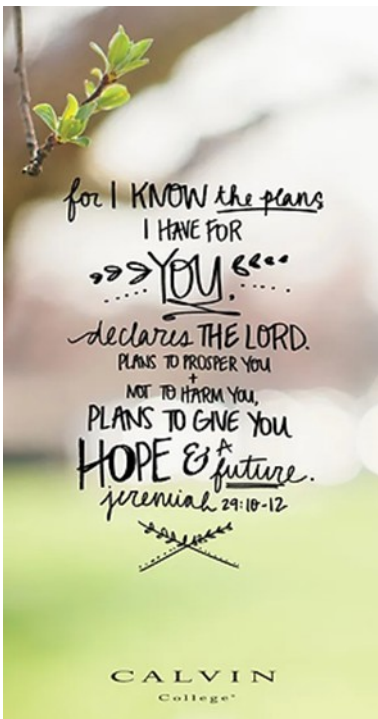 for I KNOW the plans
I HAVE FOR
YOU.
declares THE LORD.
PLANS TO PROSPER YOU
+
NOT TO HARM YOU,
PLANS TO GIVE YOU
HOPE & A
future.
jeremiah 29:10-12
CALVIN
College